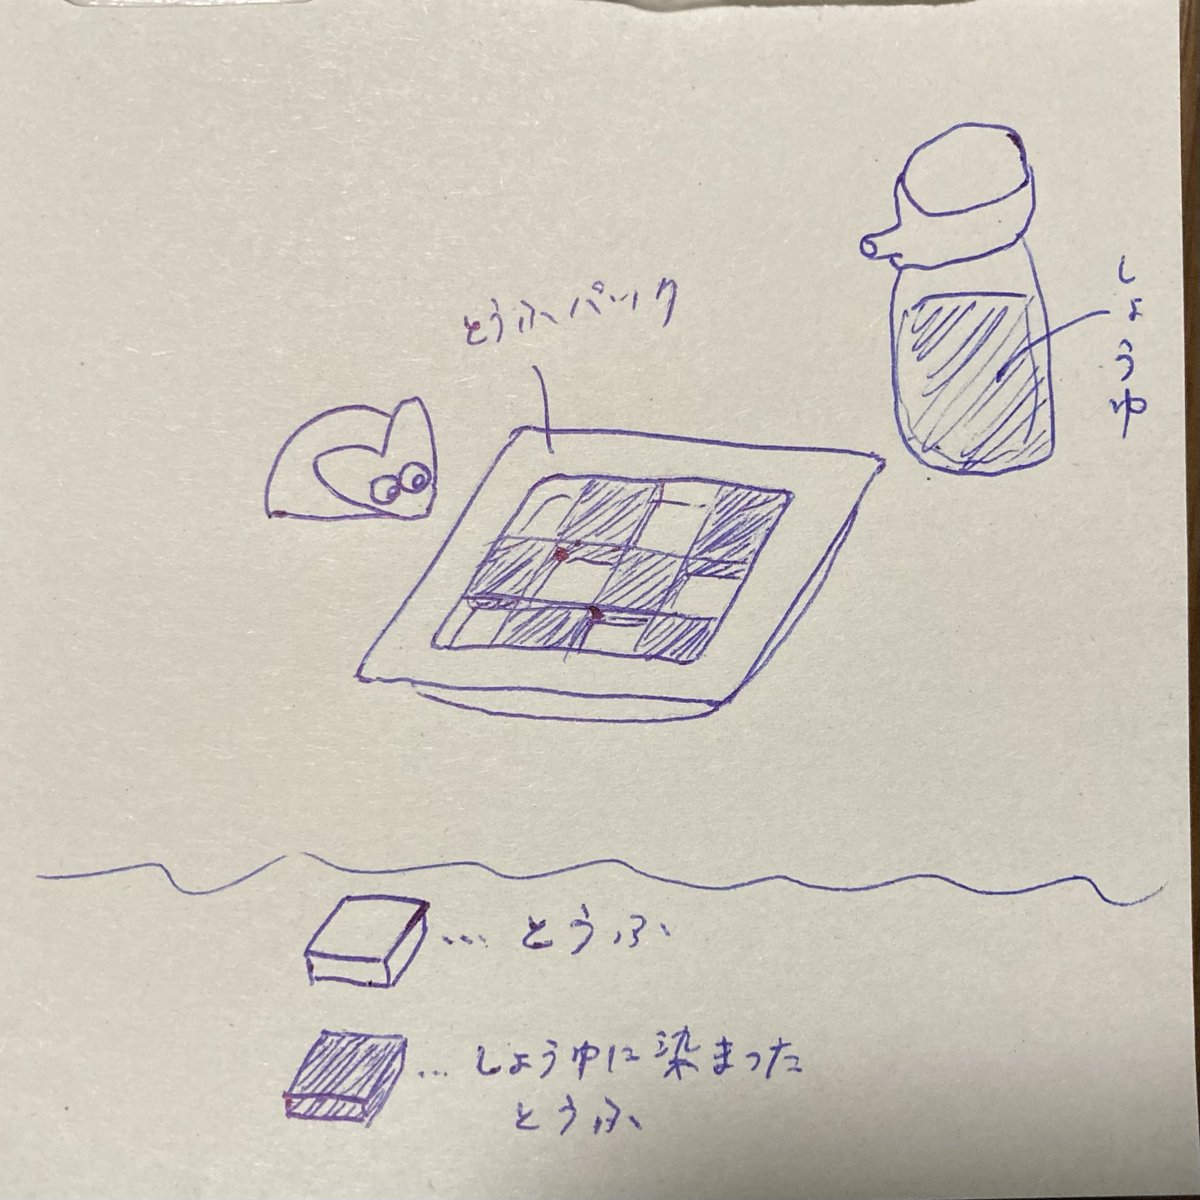 とうふパック
しょうゆ
… とうふ
… しょうゆに染まった
とうふ